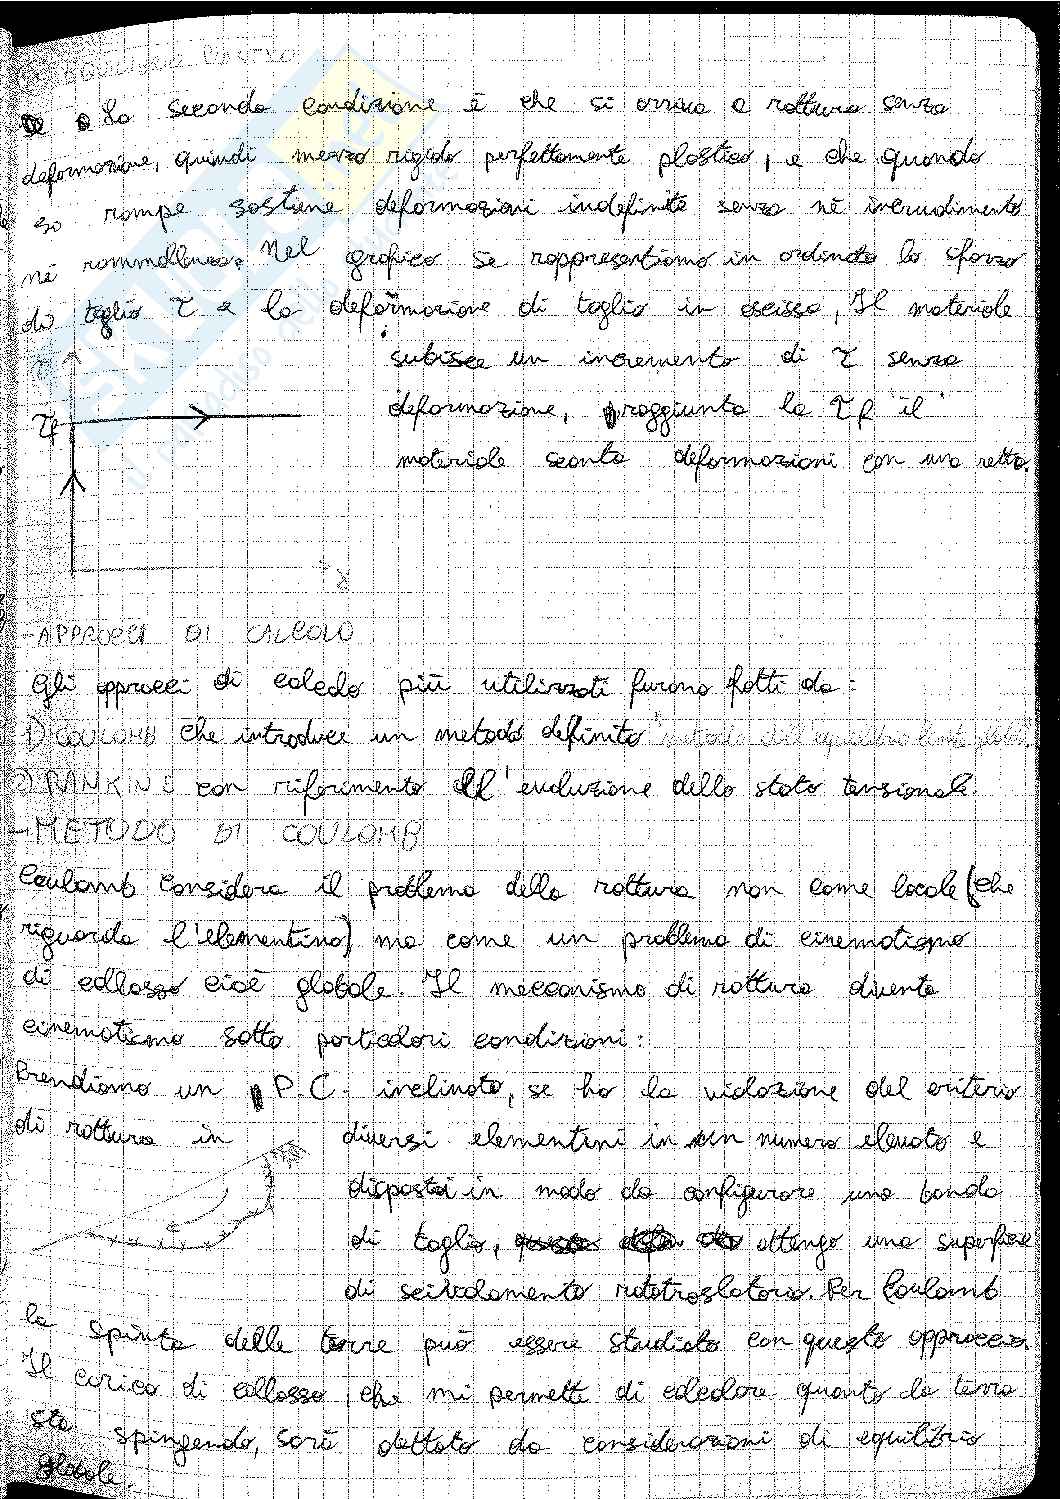 EQUILIBRIO PLASTICO
La seconda condizione è che si arriva a rottura senza
deformazione, quindi mezzo rigido perfettamente plastico, e che quando
si rompe sostiene deformazioni indefinite senza nè incrudimento
nè rammollimento. Nel grafico se rappresentiamo in ordinata lo sforzo
di taglio τ e la deformazione di taglio in ascissa, Il materiale
subisce un incremento di τ senza
deformazione, raggiunta la τf il
materiale sconta deformazioni con una retta.
τ
τf
γ
-APPROCCI DI CALCOLO
Gli approcci di calcolo più utilizzati furono fatti da:
1) COULOMB che introduce un metodo definito "metodo dell'equilibrio limite globale"
2) RANKINE con riferimento all'evoluzione dello stato tensionale.
-METODO DI COULOMB
Coulomb considera il problema della rottura non come locale (che
riguarda l'elementino) ma come un problema di cinematismo
di collasso cioè globale. Il meccanismo di rottura diventa
cinematismo sotto particolari condizioni:
Prendiamo un P.C. inclinato, se ho la violazione del criterio
di rottura in diversi elementini in un numero elevato e
disposti in modo da configurare una banda
di taglio, ottengo una superficie
di scivolamento rototraslatoria. Per Coulomb
la spinta delle terre può essere studiata con questo approccio.
Il carico di collasso, che mi permette di calcolare quanto la terra
sta spingendo, sarà dettato da considerazioni di equilibrio
globale.
SKUOLA.net